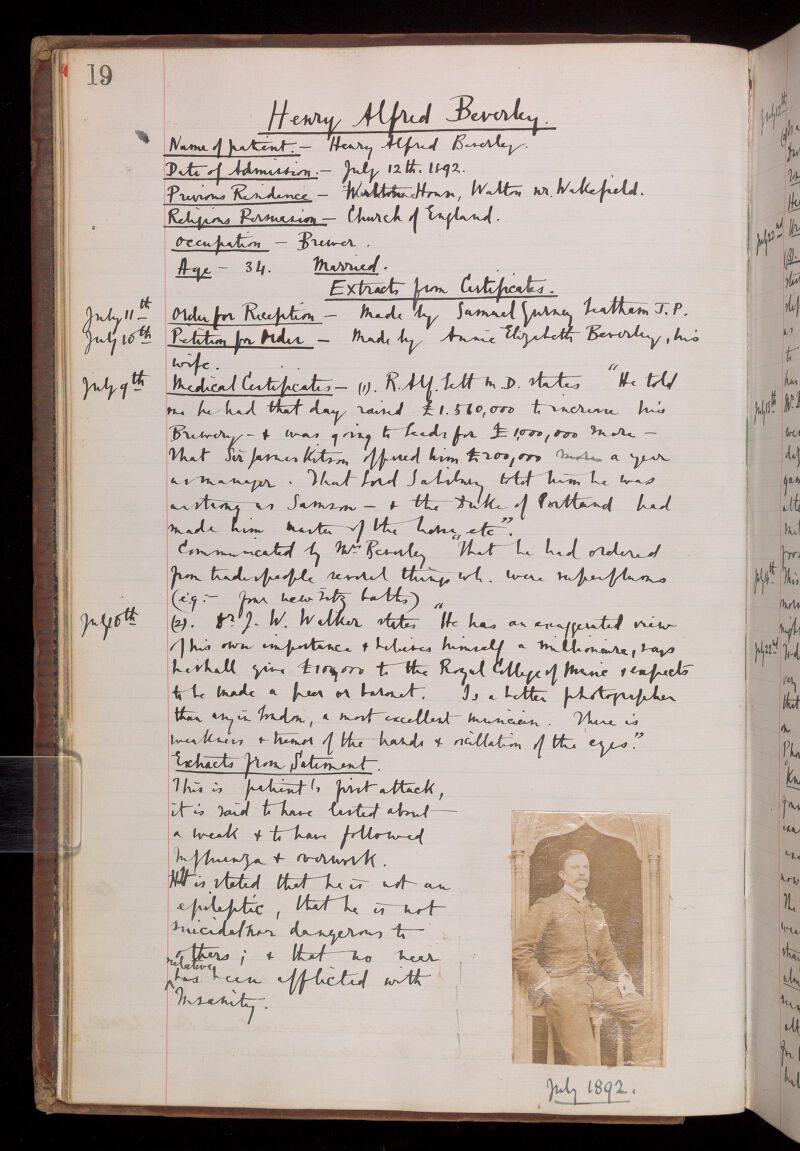 19
Henry Alfred Beverley.
Name of patient. – Henry Alfred Beverley.
Date of Admission. – July 12th. 1892.
Previous Residence – House, Walton nr. Wakefield.
Religious Persuasion – Church of England.
Occupation – Brewer.
Age – 34. Married.
Extracts from Certificates.
July 11th Order for Reception – Made by Samuel Gurney Leatham J.P.
July 10th Petition for Order – Made by Annie Elizabeth Beverley, his
wife.
July 9th Medical Certificates – (1). R. Alf. M.D. states "He told
me he had that day raised £1.560,000 to increase his
Brewery – & was going to Leeds for £1,000,000 more –
That Sir James Kitson offered him £200,000 more a year
as manager. That Lord Salisbury told him he was
as strong as Samson – & the Duke of Portland had
made him master of the horse, etc".
Communicated by Mrs Beverley "That he had ordered
from tradespeople several things wh. were superfluous
(e.g. – four new baths)
July 10th (2). Dr J. W. Walker states "He has an exaggerated view
of his own importance & believes himself a millionaire, says
he shall give £100,000 to the Royal College of Music & expects
to be made a peer or baronet. Is a better photographer
than any in London, a most excellent musician. There is
weakness & tremor of the hands & oscillation of the eyes."
Extracts from Satement.
This is patient's first attack,
it is said to have lasted about
a weak & to have followed
Influenza & overwork.
It is stated that he is not an
epileptic, that he is not
suicidal nor dangerous to
others; & that no near
relative
has been afflicted with
Insanity.
July 1892.
July 22nd
July 15th